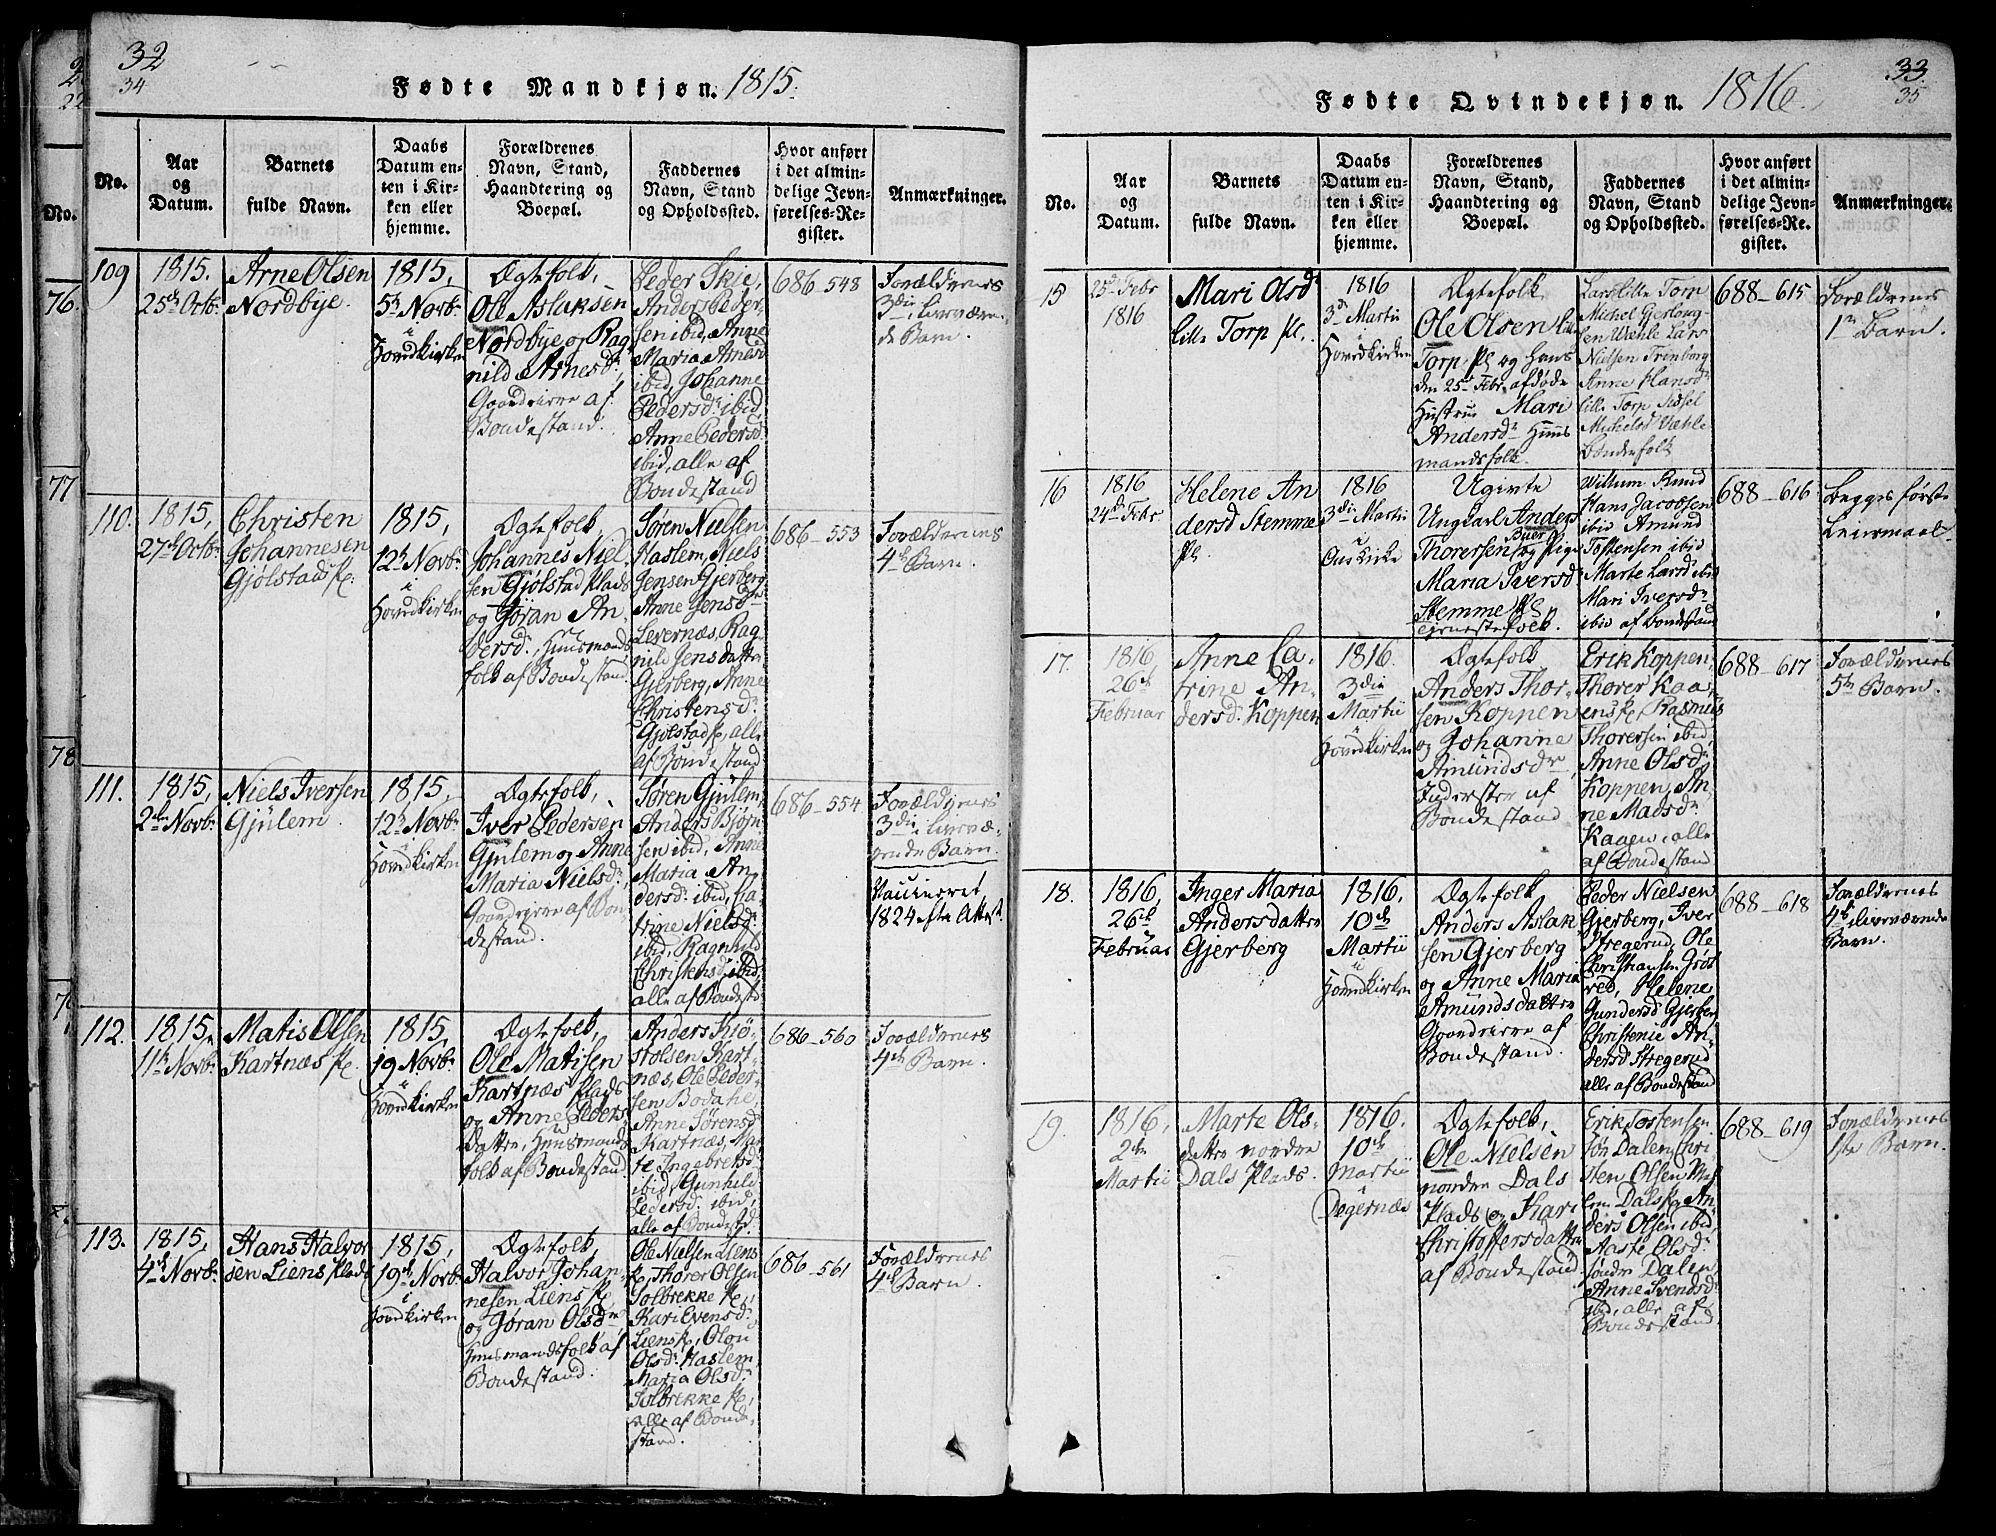 32
34
Fødte Mandkjøn. 1815.
No.
Aar
og
Datum.
Barnets
fulde Navn.
Daabs
Datum en-
ten i Kir-
ken eller
hjemme.
Forældrenes
Navn, Stand,
Haandtering og
Boepæl.
Faddernes
Navn, Stand
og Opholdssted.
Hvor anført
i det almin-
delige Jevn-
førelses-Re-
gister.
Anmærkninger.
109
1815.
25de Octbr.
Arne Olsen
Nordbye.
1815,
5te Novbr.
i
Hovedkirken
Ægtefolk,
Ole Aslaksen
Nordbye og Rag-
nild Arnesdr.,
Gaardeiere af
Bondestand.
Peder Skie,
Anders Peder-
sen ibid, Anne
Maria Arnesd
ibid, Johanne
Pedersdr. ibid,
Anne Pedersd.
ibid, alle af
Bondestand
686-548
Forældrenes
3die Liveværen-
de Barn.
110.
1815,
27de Octbr.
Christen
Johannesen
Gjølstad Pl.
1815,
12te Novbr.
i
Hovedkirken
Ægtefolk,
Johannes Niel-
sen Gjølstad Plads
og Jøran An-
dersdr., Huusmands-
folk af Bondestand.
Søren Nielsen
Haslem, Niels
Jensen Gjerberg,
Anne Jensdr.
Levernæs, Rag-
nild Jensdatter
Gjerberg, Anne
Christensdr.
Gjølstad Pl., alle
af Bondestand
686-553
Forældrenes
4de Barn.
111.
1815,
2den Novbr.
Niels Iversen
Gjulem.
1815,
12te Novbr.
i
Hovedkirken
Ægtefolk,
Iver Pedersen
Gjulem og Anne
Maria Nielsdr.,
Gaardeiere af Bon-
destand.
Søren Gjulem,
Anders Bjørn-
sen ibid, Anne
Maria An-
dersdr. ibid, Ca-
trine Nielsdr.
ibid, Ragnhild
Christensd. ibid,
alle af Bondestd.
686-554
Forældrenes
3die Livevæ-
rende Barn.
Vaccineret
1824 efter Attest.
112.
1815,
11te Novbr.
Matis Olsen
Kartnæs Pl.
1815,
19 Novbr.
i
Hovedkirken
Ægtefolk,
Ole Matisen
Kartnæs Plads
og Anne Peders-
datter, Huusmands-
folk af Bondestand.
Anders Kiø-
stolsen Kart-
næs, Ole Peder-
sen Bodahl,
Anne Sørensd
Kartnæs, Mar-
te Ingebretsd.
ibid, Gunhild
Pedersdr. ibid,
alle af Bondestd.
686-560
Forældrenes
4de Barn.
113.
1815,
4de Novbr.
Hans Halvor-
sen Liens Plads
1815,
19de Novbr.
i
Hovedkirken
Ægtefolk,
Halvor Johan-
nesen Liens Pl.
og Jøran Olsdr.,
Huusmandsfolk af
Bondestand.
Ole Nielsen Liens
Pl., Thorer Olsen
Solbrekke Pl.,
Kari Evensdr.
Liens Pl., Olou
Olsdr. Haslem,
Maria Olsdr.
Solbrekke Pl.,
alle af Bonde-
stand.
686-561
Forældrenes
4de Barn.
33.
35
Fødte Qvindekjøn. 1816.
No.
Aar
og
Datum.
Barnets
fulde Navn.
Daabs
Datum en-
ten i Kir-
ken eller
hjemme.
Forældrenes
Navn, Stand,
Haandtering og
Boepæl.
Faddernes
Navn, Stand
og Opholdssted.
Hvor anført
i det almin-
delige Jevn-
førelses-Re-
gister.
Anmærkninger.
15
25de Febr
1816
Mari Olsdr
Lille Torp Pl.
1816
3die Martii
i
Hovedkirken
Ægtefolk
Ole Olsen Lille
Torp Pl og hans
den 25de Febr. afdøde
Hustrue Mari
Andersdr. Huus-
mandsfolk.
Lars Lille Torp
Michel
Nielsen
Anne Hansdr
Lille Torp Sissel
Michelsd
Bondefolk
688-615
Forældrenes
1te Barn.
16
1816
24de Febr
Helene An
dersd Stemme
Pl.
1816
3die Martii
i
Ous Kirke
Ugivte
Ungkarl Anders
Thorersen Buer og Pige
Maria Iversd
Stemme Pl,
tjenestefolk.
Knud
Hans Jacobsen
ibid Amund
Tostensen ibid
Marte Larsd ibid
Mari Iversdr
ibid af Bondestand
688-616
Begges første
Leiermaal.
17.
1816,
26de
Februar
Anne Ca-
trine An-
dersd. Koppen
1816.
3die
Martii
i
Hovedkirken
Ægtefolk
Anders Thor-
sen Koppen
og Johanne
Amundsdr.,
Inderster af
Bondestand
Erik Koppen,
Thorer Kaa-
ens Pl, Rasmus
Thorersen ibid,
Anne Olsdr.
Koppen, An-
ne Madsdr.
Kaaen, alle
af Bondestand
688-617
Forældrenes
5te Barn.
18.
1816,
26de
Februar
Inger Maria
Andersdatter
Gjerberg
1816.
10de
Martii
i
Hovedkirken
Ægtefolk
Anders Aslak-
sen Gjerberg
og Anne Maria
Amundsdatter
Gaardeiere af
Bondestand.
Peder Nielsen
Gjerberg, Iver
Stregerud, Ole
Christiansen
Helene
Gundersd Gjerberg
Christenie An-
dersd Stregerud
alle af Bondestand
688-618
Forældrenes
4de Liveværende
Barn.
19.
1816,
2den
Martii
Marte Ols-
datter nordre
Dals Plads.
1816.
10de
Martii
i
Degernæs
Ægtefolk,
Ole Nielsen
nordre Dals
Plads og Kari
Christoffersdatter
af Bondestand.
Erik Tostensen
Søn Dalen, Chri-
sten Olsen
Dals Pl, An-
ders Olsen ibid,
Aaste Olsdr.
søndre Dalen
Anne Svendsdr.
ibid, alle af
Bondestand
688-619
Forældrenes
1ste Barn.
No.
76.
77
78